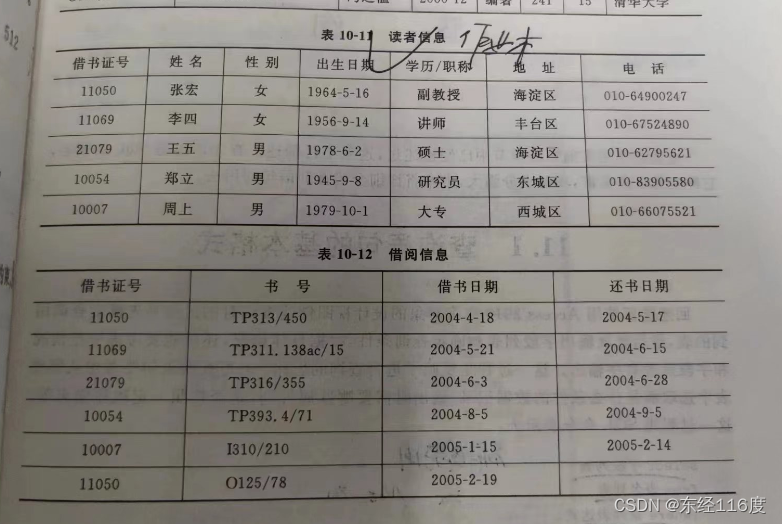 512
2000-12 编著 241 15 清华大学
表 10-11 读者信息 作业本
借书证号 姓 名 性 别 出生日期 学历/职称 地 址 电 话
11050 张宏 女 1964-5-16 副教授 海淀区 010-64900247
11069 李四 女 1956-9-14 讲师 丰台区 010-67524890
21079 王五 男 1978-6-2 硕士 海淀区 010-62795621
10054 郑立 男 1945-9-8 研究员 东城区 010-83905580
10007 周上 男 1979-10-1 大专 西城区 010-66075521
表 10-12 借阅信息
借书证号 书 号 借书日期 还书日期
11050 TP313/450 2004-4-18 2004-5-17
11069 TP311.138ac/15 2004-5-21 2004-6-15
21079 TP316/355 2004-6-3 2004-6-28
10054 TP393.4/71 2004-8-5 2004-9-5
10007 I310/210 2005-1-15 2005-2-14
11050 O125/78 2005-2-19
CSDN @东经116度